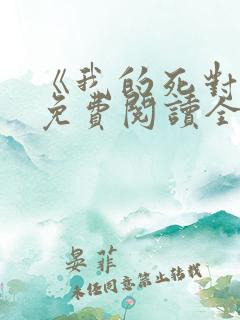 《我的死对
免費閱讀全
晏菲
未经同意禁止转载